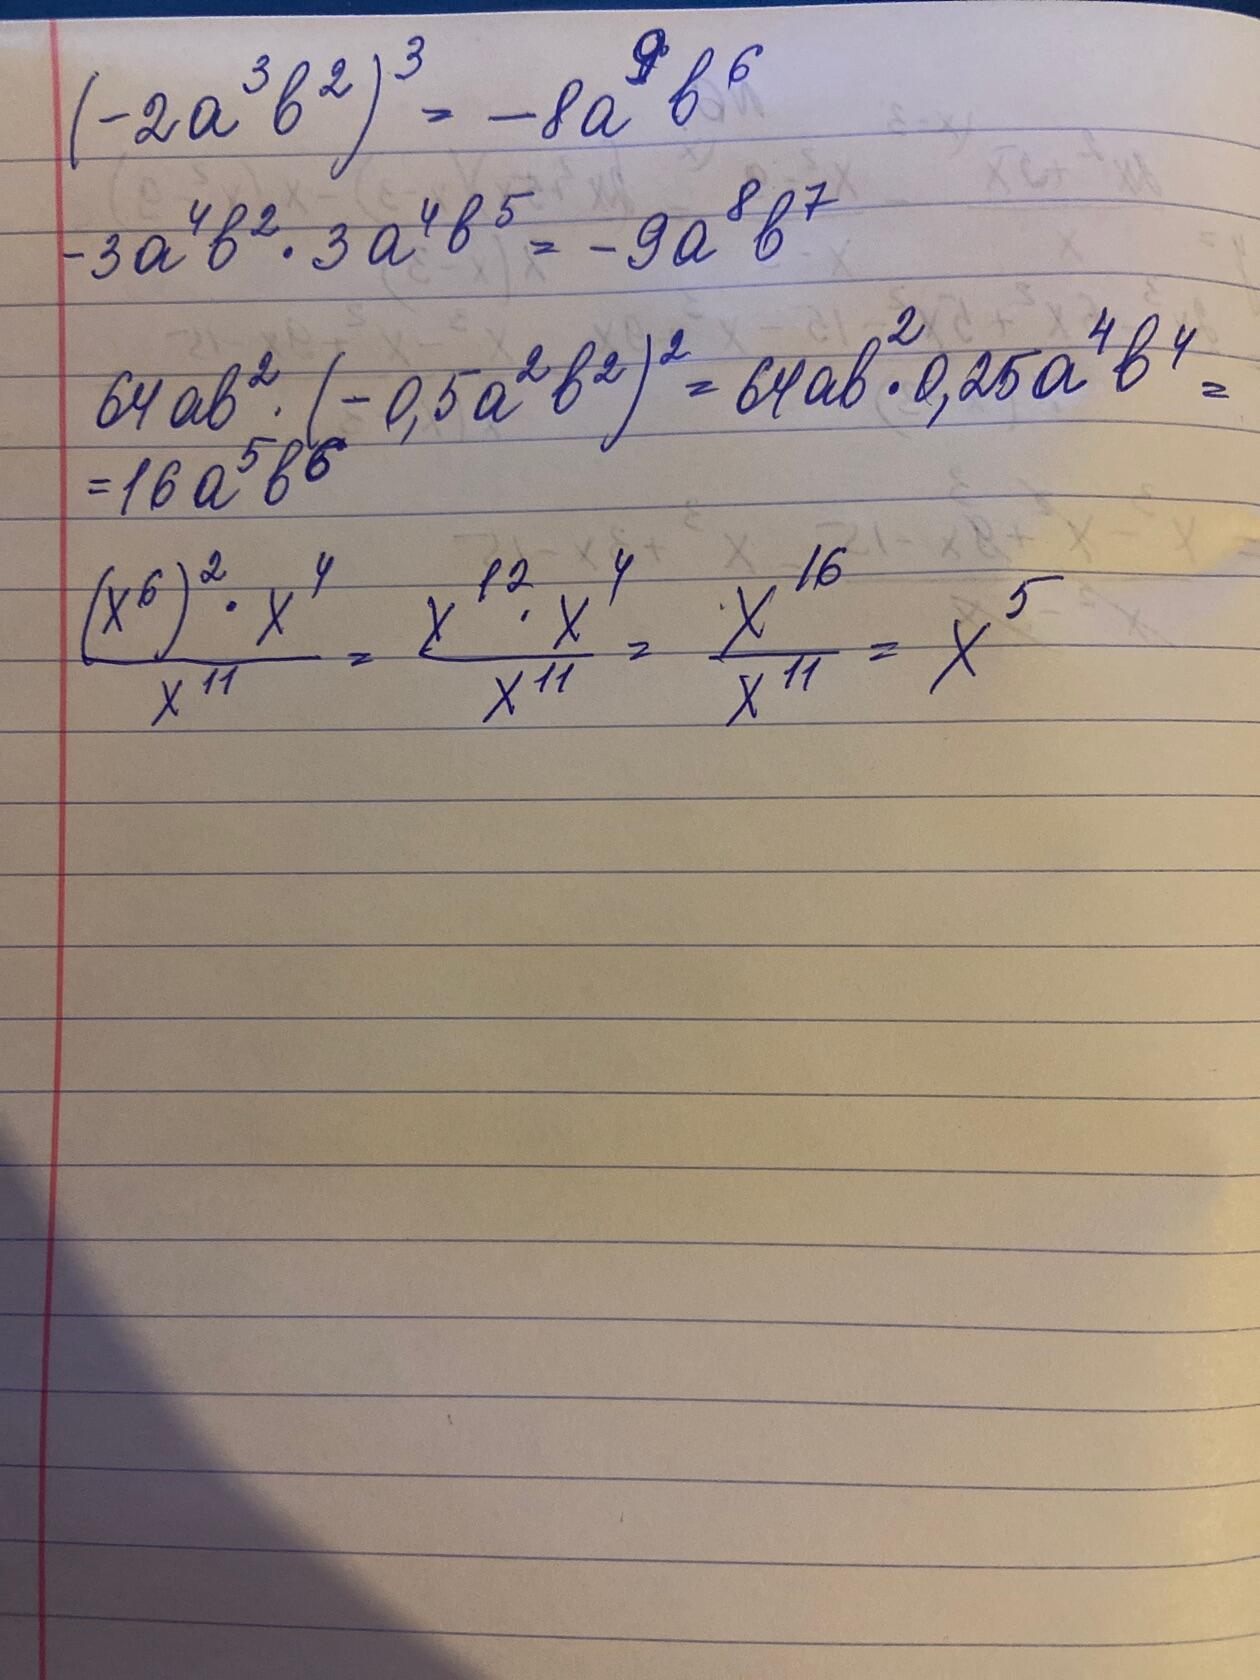 (-2a³b²)³ = -8a⁹b⁶
-3a⁴b² · 3a⁴b⁵ = -9a⁸b⁷
64ab² · (-0,5a²b²)² = 64ab² · 0,25a⁴b⁴ =
= 16a⁵b⁶
(x⁶)² · x⁴ / x¹¹ = x¹² · x⁴ / x¹¹ = x¹⁶ / x¹¹ = x⁵